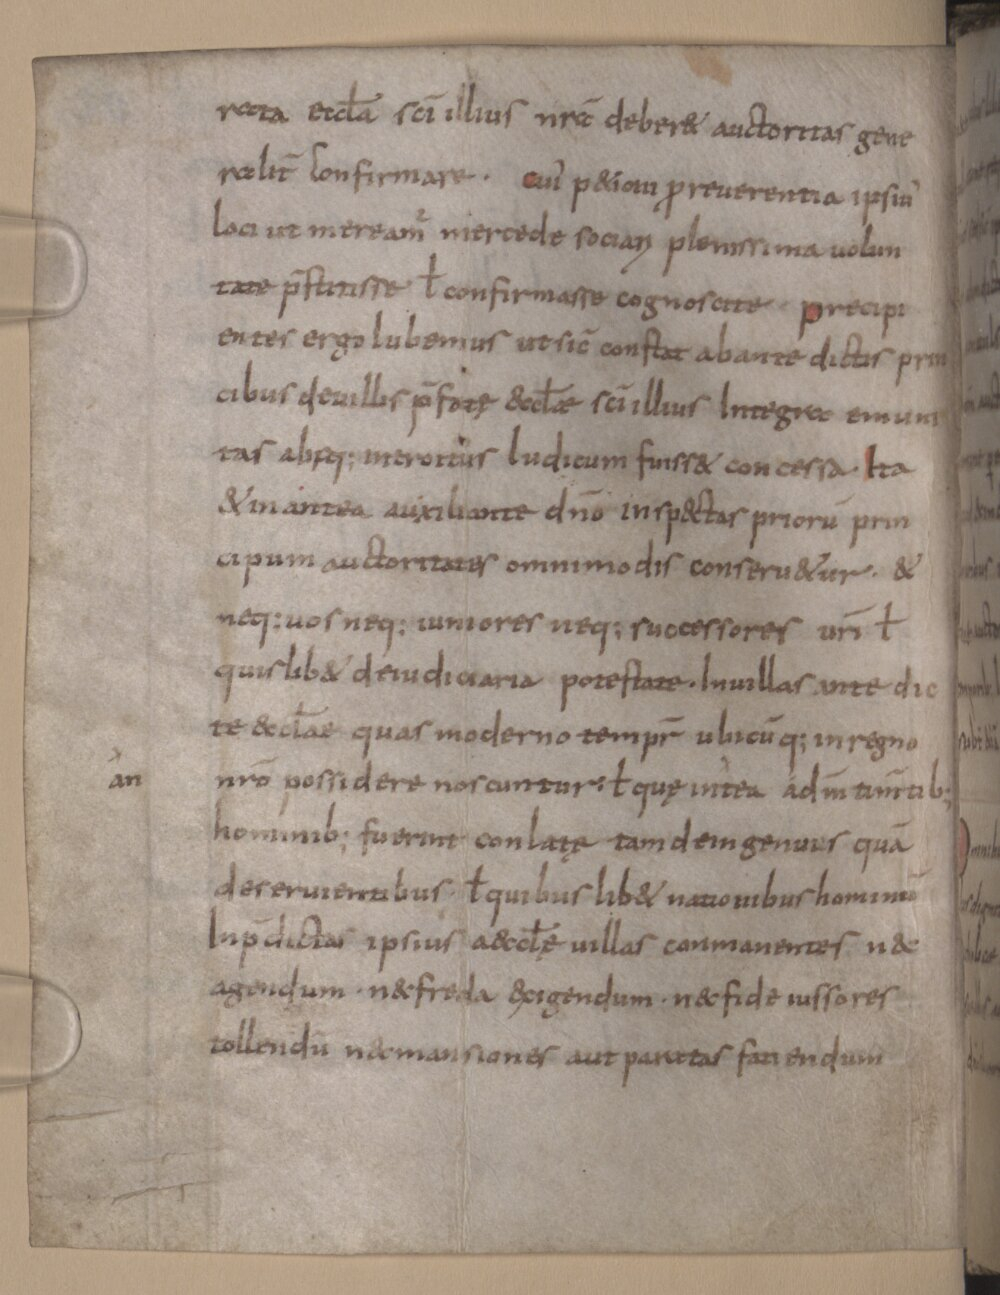 recta eccła sc̄i illius nr̄ae deber& auctoritas gene
ralit̄ confirmare · cui p&icioni ꝓ reuerentia ipsiuˢ
loci ut mereamˀ mercede sociari plenissima uolun
tate p̄stitisse ł confirmasse cognoscite · precipi
entes ergo Iubemus ut sic̄ constat ab ante dictis prin
cibus de uillis p̄fatę &cclæ sc̄i illius Integra emuni
tas absq; introitus Iudicum fuiss& concessa · Ita
& in antea auxiliante dn̄o inspectas priorū prin
cipum auctoritates omnimodis conseru&ur · &
neq; uos neq; iuniores neq; successores ur̄i ł
quislib& de iudiciaria potestate · In uillas ante dic
te &cłae quas moderno tempr̄ ubicūq; in regno
nr̄o possidere noscuntur · ł quę in tea ad m̄ tim̄tib;
an
hominib; fuerint conlatę tam de ingenuis quā
deseruientibus · ł quibus lib& nationibus hominū
In p̄dictas ipsius aecclę uillas conmanentes nec
agendum · nec freda exigendum · nec fideiussores
tollendū nec mansiones aut paratas faciendum